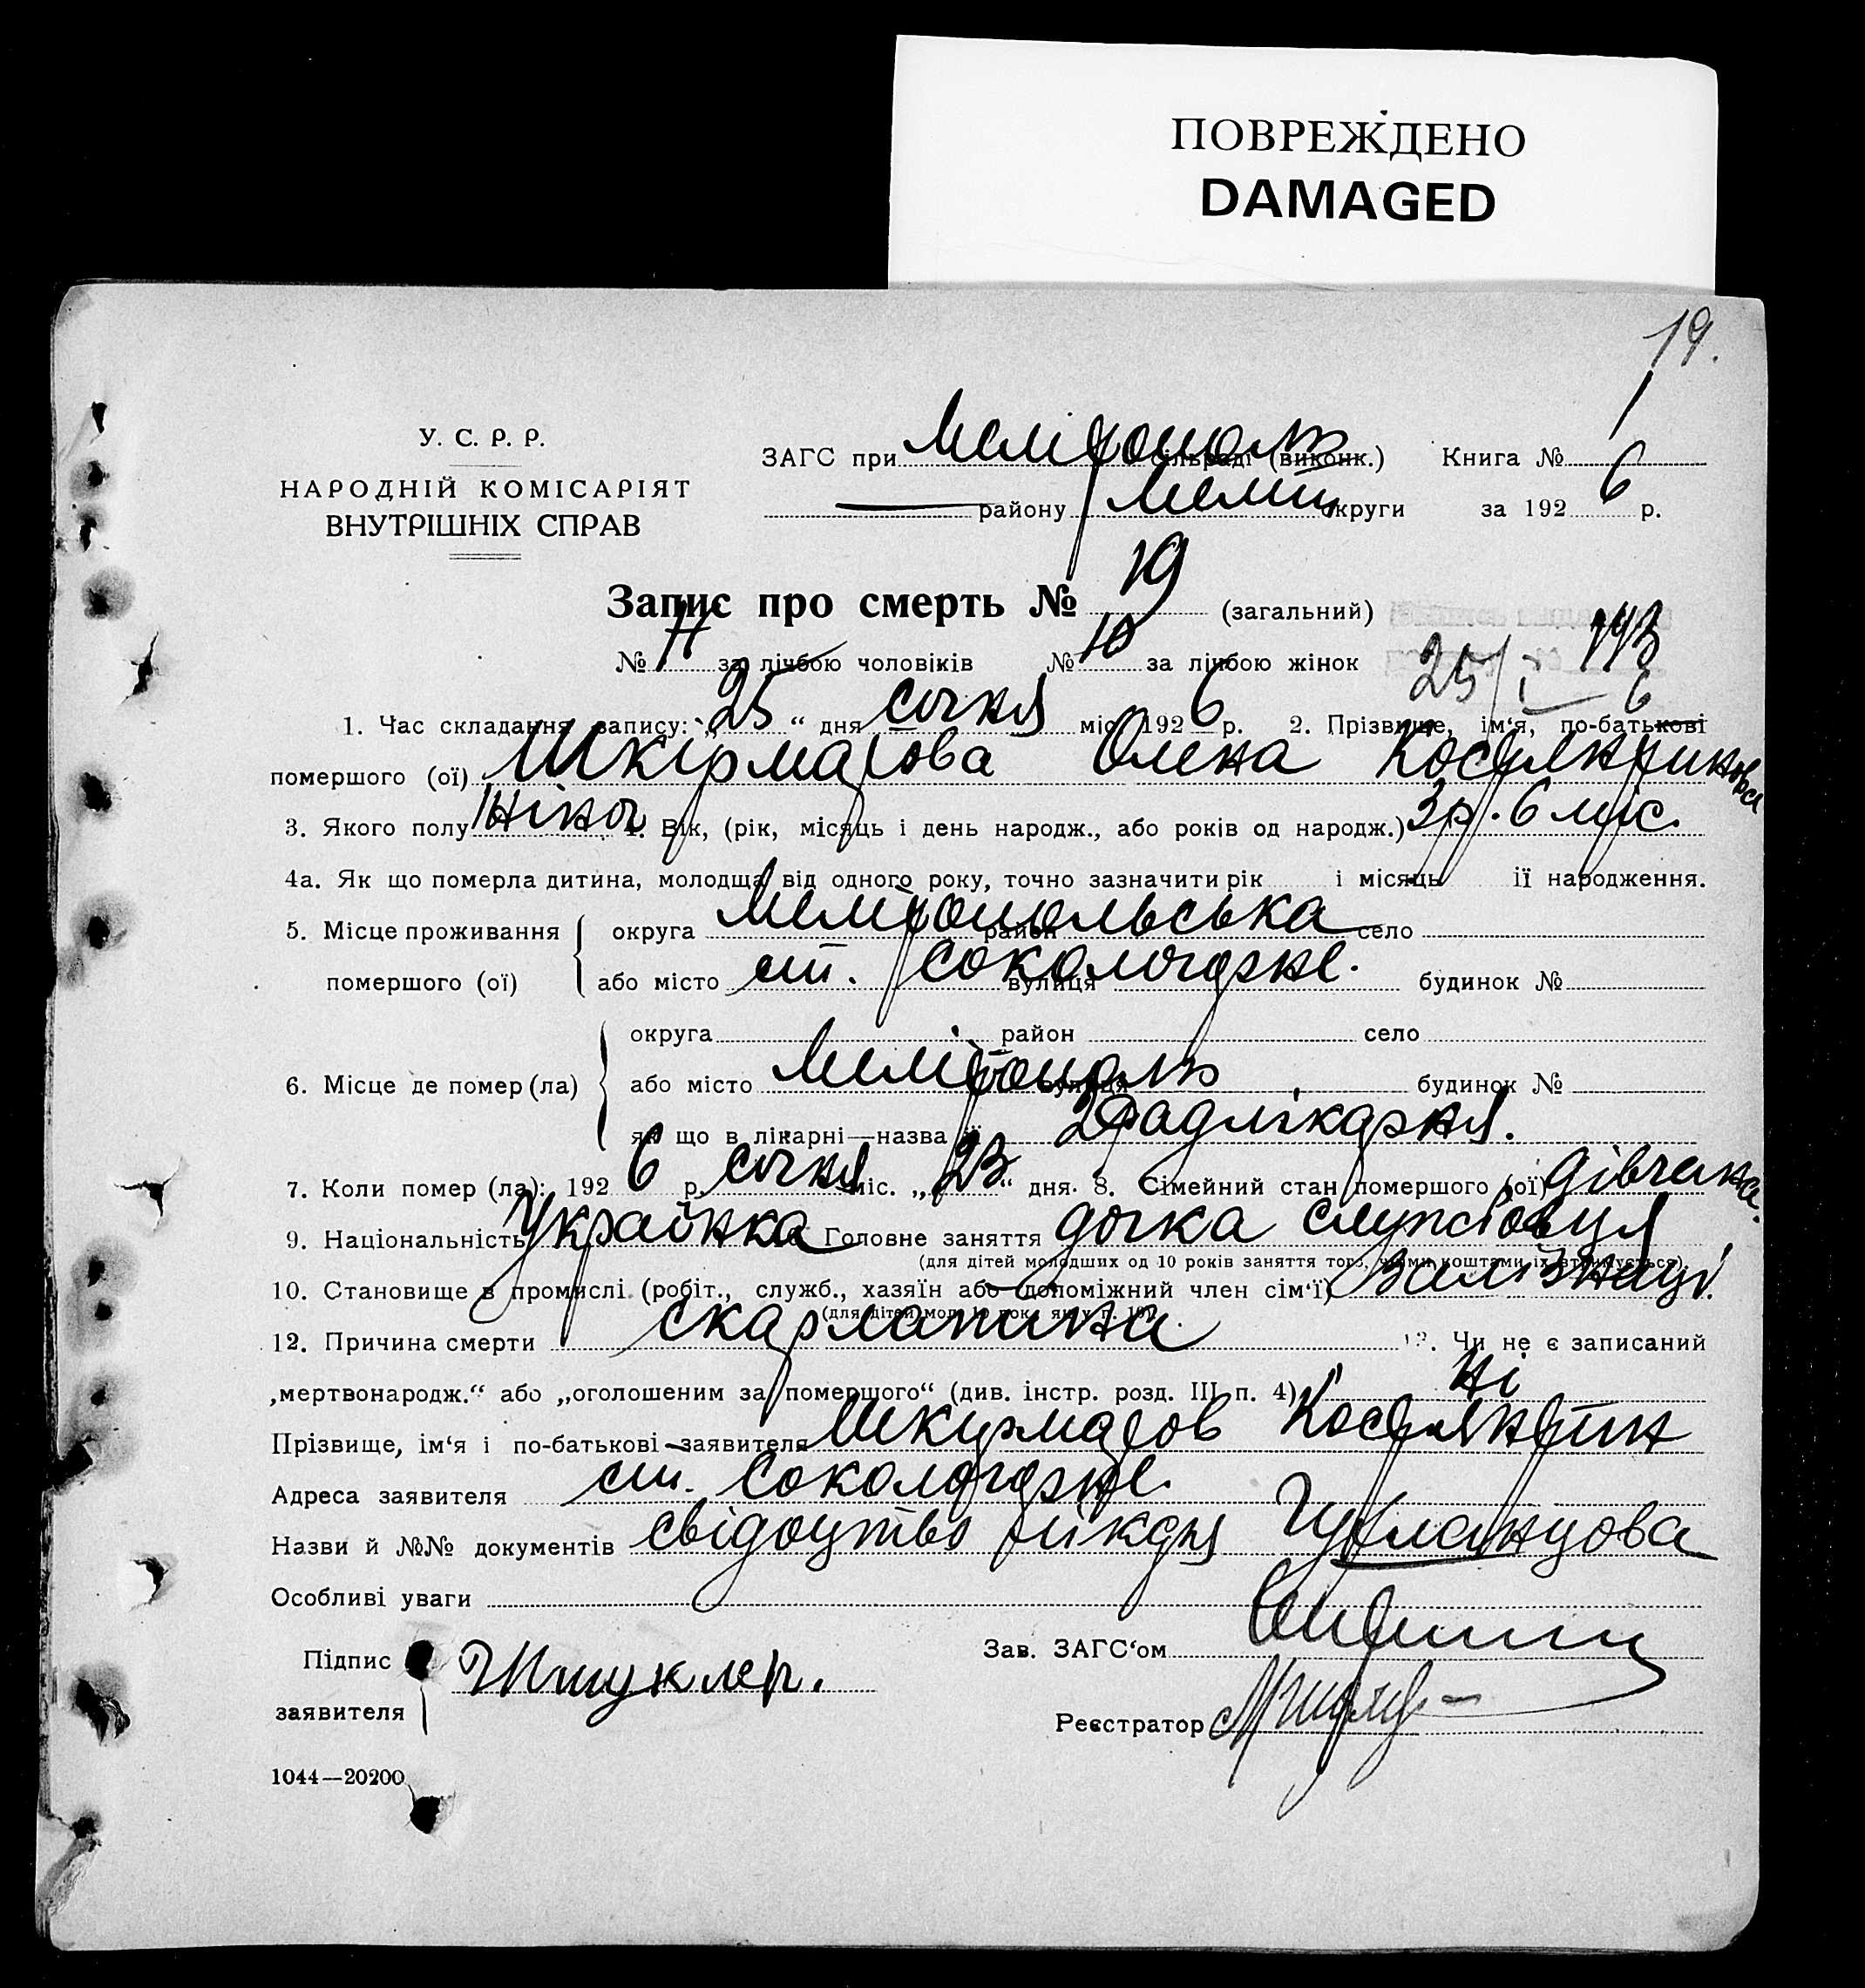 ПОВРЕЖДЕНО
DAMAGED
19.
У. С. Р. Р.
НАРОДНІЙ КОМІСАРІЯТ
ВНУТРІШНІХ СПРАВ
ЗАГС при Мелітополь сільраді (виконк.) Книга № 1
району Меліт округи за 1926 р.
Запис про смерть № 19 (загальний)
№ за лічбою чоловіків № 10 за лічбою жінок
25/I 6
1. Час складання запису: „25“ дня січня міс. 1926 р. 2. Прізвище, ім‘я, по-батькові
помершого (ої) Шкірматова Олена Костянтиновна
3. Якого полу жіноч 4. Вік, (рік, місяць і день народж., або років од народж.) 3 р. 6 міс.
4а. Як що померла дитина, молодща від одного року, точно зазначити рік і місяць її народження.
5. Місце проживання округа Мелітопольська район село
помершого (ої) або місто ст. Сокологорне. вулиця будинок №
округа район село
6. Місце де помер (ла) або місто Мелітополь вулиця будинок №
як що в лікарні—назва її 2 Радлікарня.
7. Коли помер (ла): 1926 р. січня міс. „23“ дня. 8. Сімейний стан помершого (ої) дівчина.
9. Національність Українка Головне заняття дочка службовця
(для дітей молодших од 10 років заняття того, чиїми коштами їх втримується)
10. Становище в промислі (робіт., служб., хазяїн або допоміжний член сім‘ї) залізниці.
(для дітей мол. 10 рок. як у п. 10)
12. Причина смерти скарлатина 13. Чи не є записаний
„мертвонародж.“ або „оголошеним за помершого“ (див. інстр. розд. III п. 4) ні
Прізвище, ім‘я і по-батькові заявителя Шкурматов Костянтин
Адреса заявителя ст. Сокологорне.
Назви й №№ документів свідоцтво лікаря
Особливі уваги
Підпис
заявителя
Зав. ЗАГС‘ом
Реєстратор
1044—20200